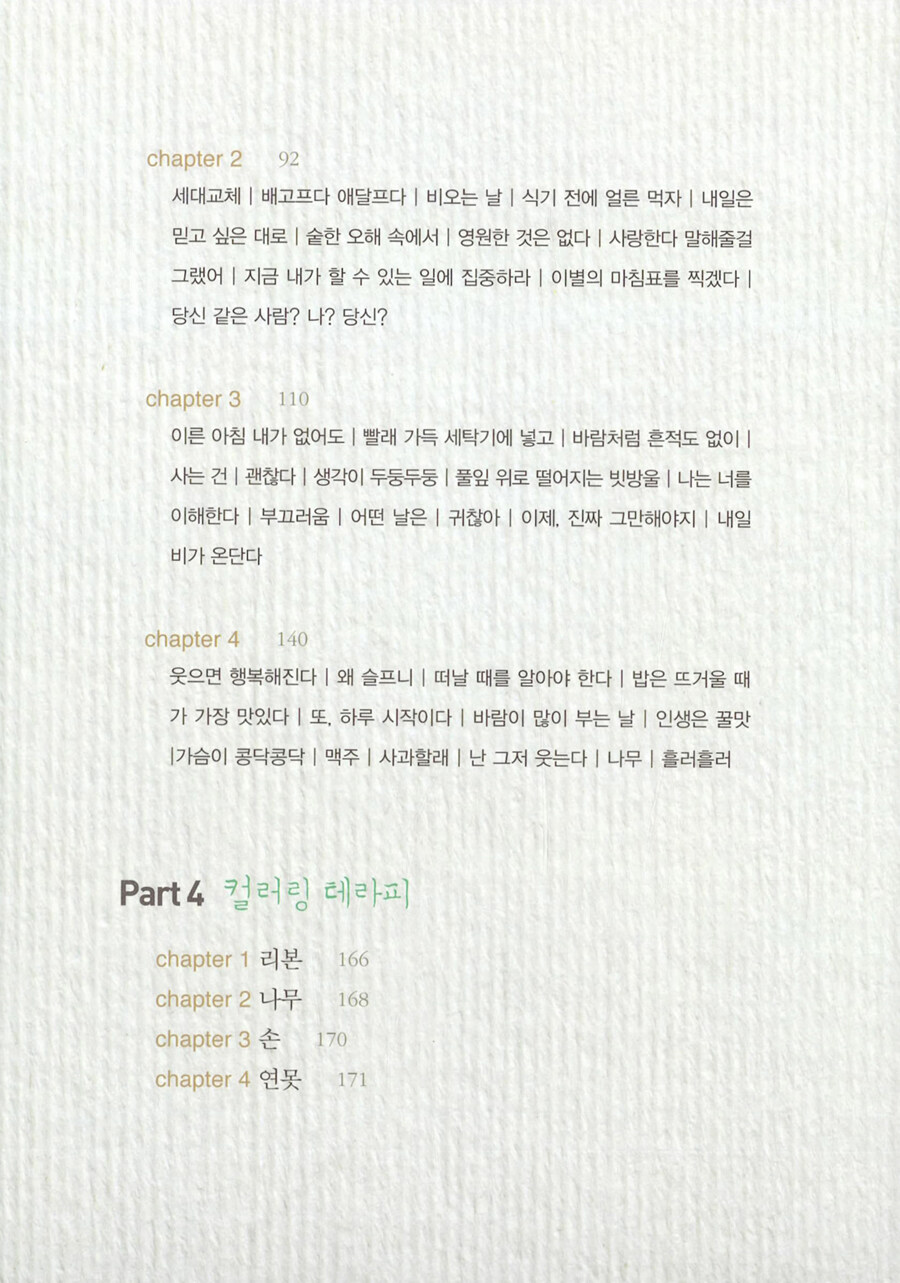 chapter 2 92
세대교체 | 배고프다 애달프다 | 비오는 날 | 식기 전에 얼른 먹자 | 내일은
믿고 싶은 대로 | 숱한 오해 속에서 | 영원한 것은 없다 | 사랑한다 말해줄걸
그랬어 | 지금 내가 할 수 있는 일에 집중하라 | 이별의 마침표를 찍겠다 |
당신 같은 사람? 나? 당신?
chapter 3 110
이른 아침 내가 없어도 | 빨래 가득 세탁기에 넣고 | 바람처럼 흔적도 없이 |
사는 건 | 괜찮다 | 생각이 두둥두둥 | 풀잎 위로 떨어지는 빗방울 | 나는 너를
이해한다 | 부끄러움 | 어떤 날은 | 귀찮아 | 이제, 진짜 그만해야지 | 내일
비가 온단다
chapter 4 140
웃으면 행복해진다 | 왜 슬프니 | 떠날 때를 알아야 한다 | 밥은 뜨거울 때
가 가장 맛있다 | 또, 하루 시작이다 | 바람이 많이 부는 날 | 인생은 꿀맛
|가슴이 콩닥콩닥 | 맥주 | 사과할래 | 난 그저 웃는다 | 나무 | 흘러흘러
Part 4 컬러링 테라피
chapter 1 리본 166
chapter 2 나무 168
chapter 3 손 170
chapter 4 연못 171